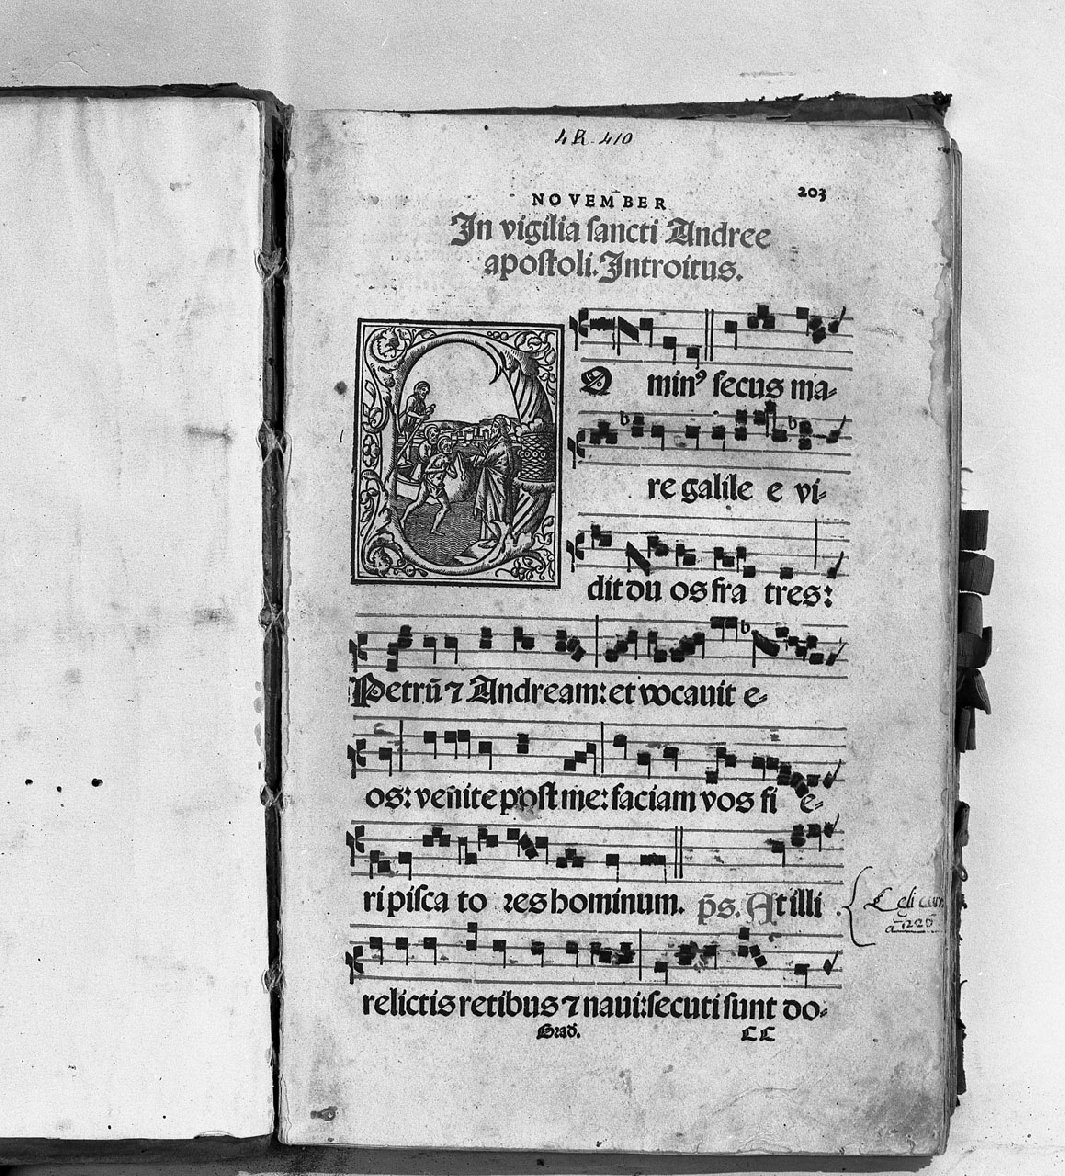 4 R. 410
NOVEMBER
203
In vigilia sancti Andree
apostoli. Introitus.
D minꝰ secus ma-
re galile e vi-
dit du os fra tres:
Petrū ⁊ Andream: et vocauit e-
os: venite post me: faciam vos fi e-
ri pisca to res hominum. p̄s. At illi
relictis retibus ⁊ naui: secuti sunt do-
Grad. CC